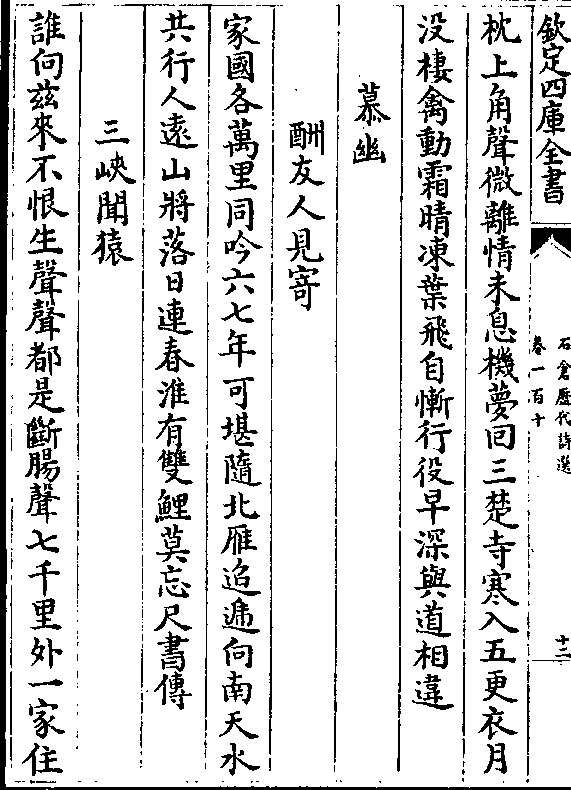 欽定四庫全書
石倉歷代詩選
卷一百十
十二
枕上角聲微離情未息機夢回三楚寺寒入五更衣月
没棲禽動霜晴凍葉飛自慚行役早深與道相違
慕幽
酬友人見寄
家國各萬里同吟六七年可堪隨北雁迢遞向南天水
共行人遠山將落日連春淮有雙鯉莫忘尺書傳
三峽聞猿
誰向茲來不恨生聲聲都是斷腸聲七千里外一家住